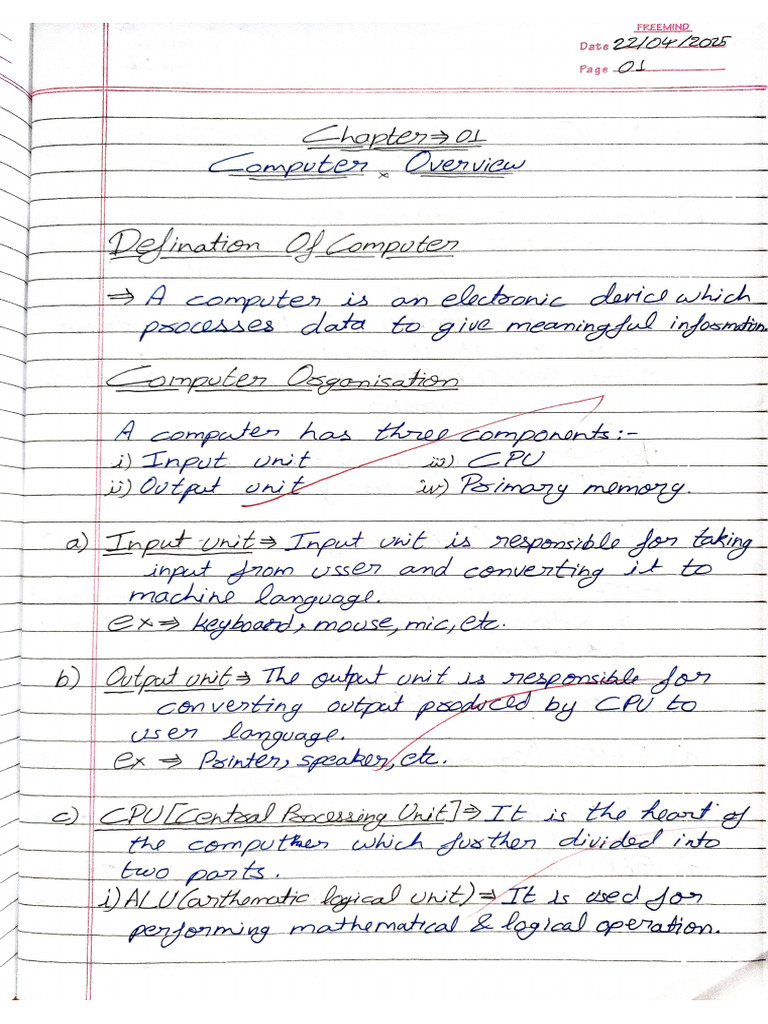 FREEMIND
Date 22/04/2025
Page 01
Chapter ⇒ 01
Computer Overview
Defination Of Computer
⇒ A computer is an electronic device which
processes data to give meaningful information.
Computer Organisation
A computer has three components:-
i) Input unit iii) CPU
ii) Output unit iv) Primary memory.
a) Input unit ⇒ Input unit is responsible for taking
input from usser and converting it to
machine language.
ex ⇒ keyboard, mouse, mic, etc.
b) Output unit ⇒ The output unit is responsible for
converting output produced by CPU to
user language.
ex ⇒ Printer, speaker, etc.
c) CPU [Central Processing Unit] ⇒ It is the heart of
the computher which further divided into
two parts.
i) ALU (arthematic logical unit) ⇒ It is used for
performing mathematical & logical operation.